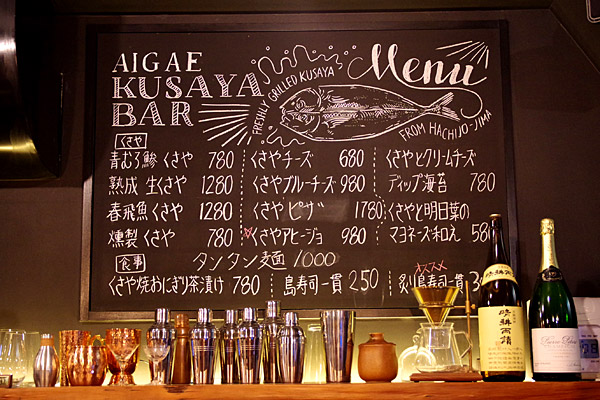 AIGAE
KUSAYA
BAR
FRESHLY GRILLED KUSAYA
Menu
FROM HACHIJO-JIMA
くさや
青むろ鯵 くさや 780
熟成 生くさや 1280
春飛魚 くさや 1280
燻製 くさや 780
くさやチーズ 680
くさやブルーチーズ 980
くさやピザ 1780
くさやアヒージョ 980
くさやとクリームチーズ
ディップ海苔 780
くさやと明日葉の
マヨネーズ和え 58
食事
タンタン麺 1000
くさや焼おにぎり茶漬け 780
島寿司一貫 250
オススメ
炙り島寿司一貫 3
晴耕雨讀